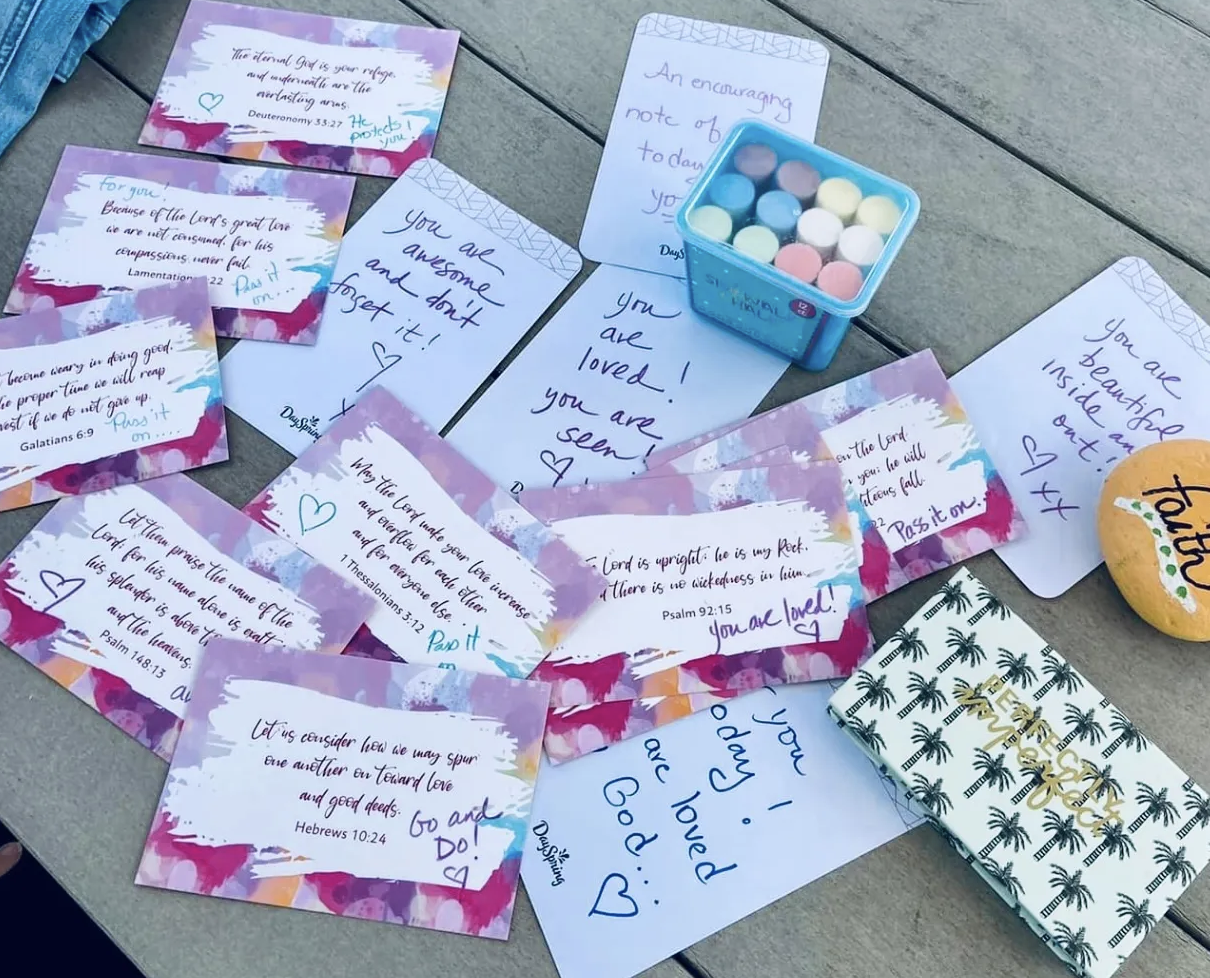 The eternal God is your refuge,
and underneath are the
everlasting arms.
Deuteronomy 33:27
He
protects
you
For you!
Because of the Lord's great love
we are not consumed, for his
compassions never fail.
Pass it
on...
An encouraging
note of
today
DaySpring
You are
awesome
and don't
forget it!
DaySpring
become weary in doing good,
proper time we will reap
if we do not give up.
Galatians 6:9
Pass it
on....
You
are
loved!
you are
seen!
You are
beautiful
inside
out!
xx
on the Lord
you; he will
fall.
Pass it on.
Faith
May the Lord make your love increase
and overflow for each other
and for everyone else...
1 Thessalonians 3:12
Pass it
on
Lord is upright; he is my Rock,
there is no wickedness in him.
Psalm 92:15
you are loved!
Let them praise the name of the
Lord, for his name alone is
his splendor is above
and the heavens.
Psalm 148:13
Let us consider how we may spur
one another on toward love
and good deeds.
Hebrews 10:24
Go and
Do!
you
today!
are loved
God...
DaySpring
PERFECTLY
imperfect